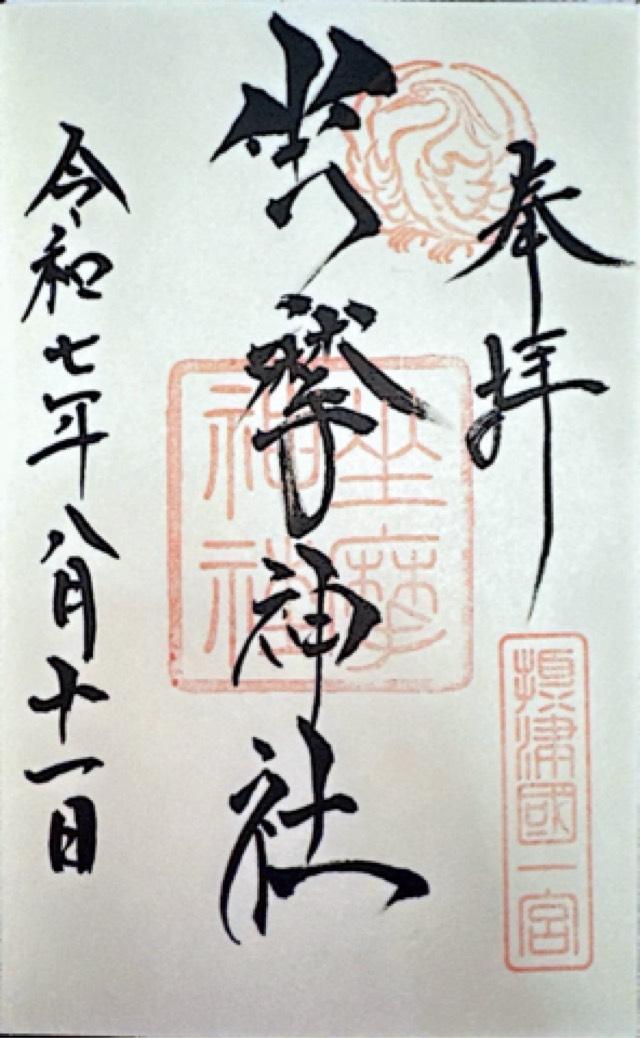 奉拝
摂津國一宮
坐摩神社
坐摩神社
令和七年八月十一日